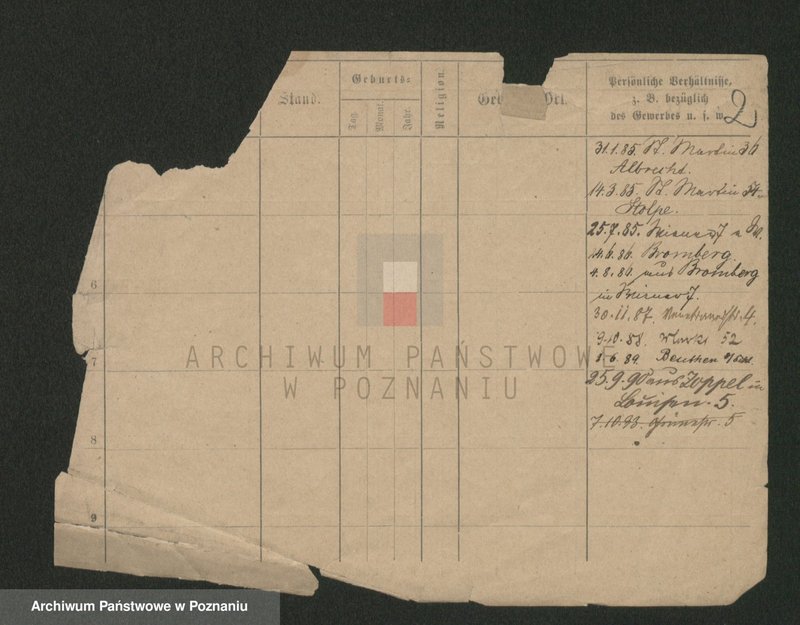 Stand.
Geburts=
Tag.
Monat.
Jahr.
Religion.
Ort.
Persönliche Verhältnisse,
z. B. bezüglich
des Gewerbes u. s. w.
2
31.1.85. St. Martin 36
Albrecht.
14.3.85. St. Martin 34
Stolpe.
25.7.85.
14.6.86. Bromberg
4.8.86 aus Bromberg
in
30.11.87. 4.
9.10.88. Markt 52
1.6.89. Beuthen o/Schl.
25.9.90 aus Zoppel in
Louisen. 5.
7.10.93. 5
6
7
8
9
ARCHIWUM PAŃSTWOWE
W POZNANIU
Archiwum Państwowe w Poznaniu